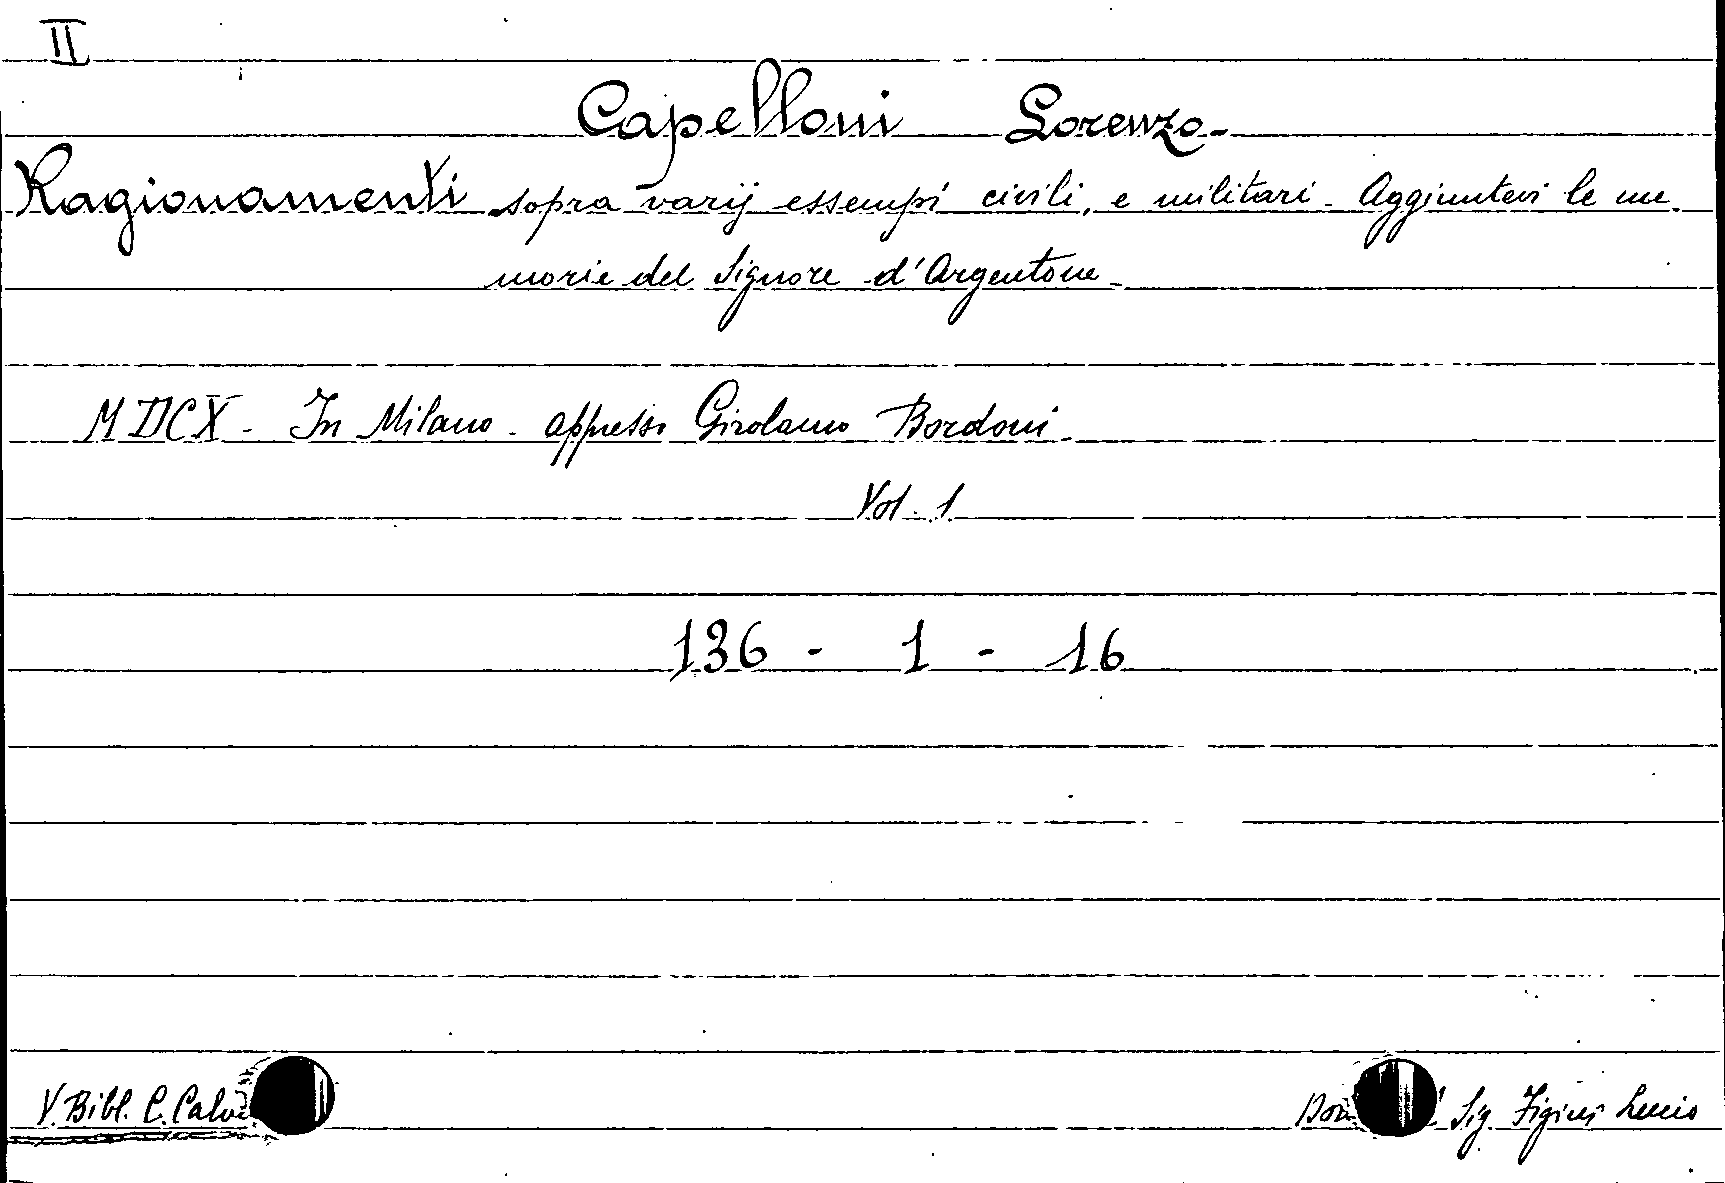 II
Capelloni Lorenzo-
Ragionamenti sopra varij essempi civili, e militari - Aggiuntevi le me
morie del Signore d'Argentone -
MDCX - In Milano - appresso Girolamo Bordoni -
Vol. 1
136 - 1 - 16
V. Bibl. C. Calvi
Sig. Lucio